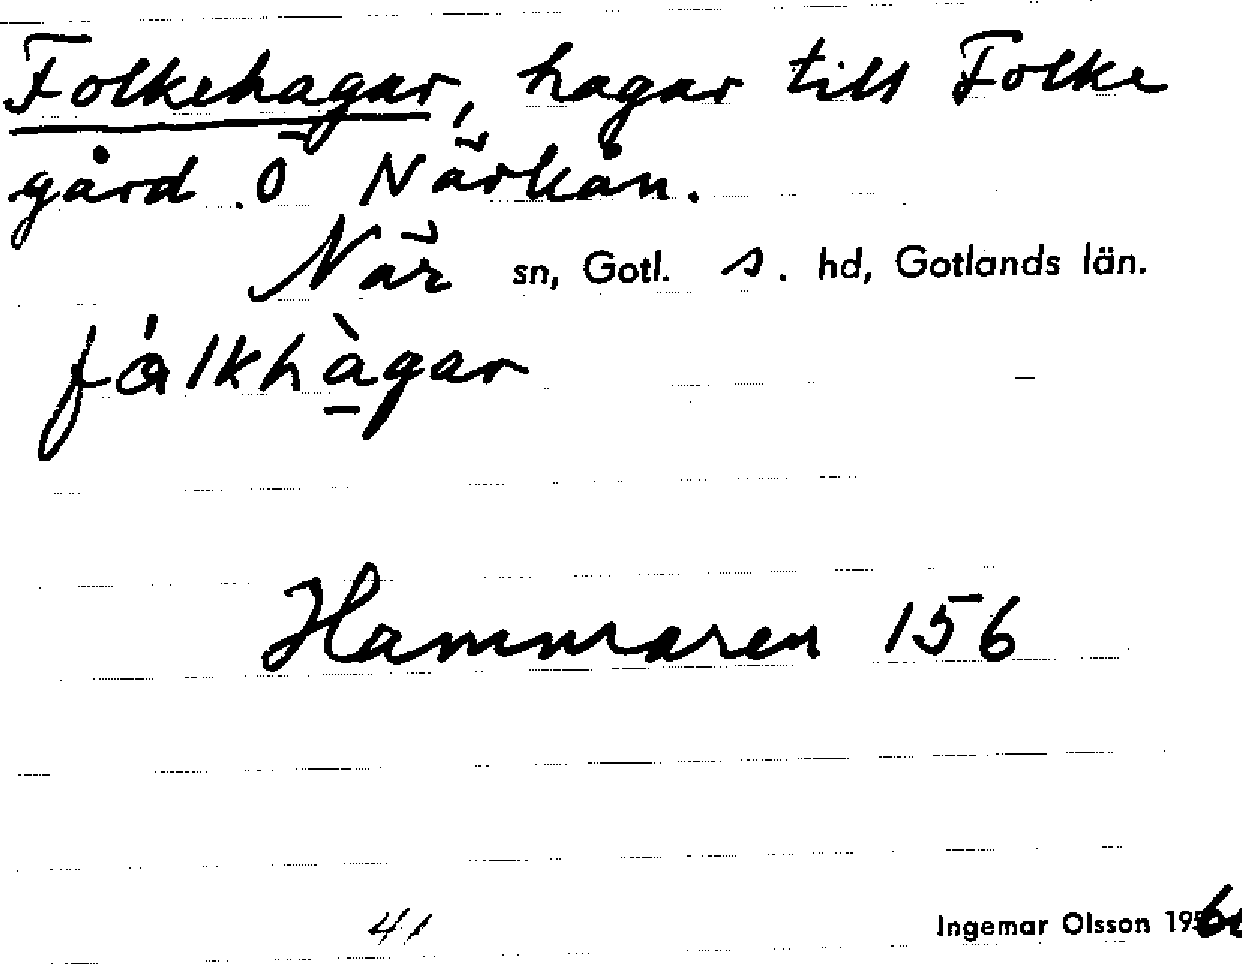 Folkehagar, hagar till Folke
gård. Ö Närkån.
När sn, Gotl. s. hd, Gotlands län.
fålkhàgar
Hammaren 156
41
Ingemar Olsson 196